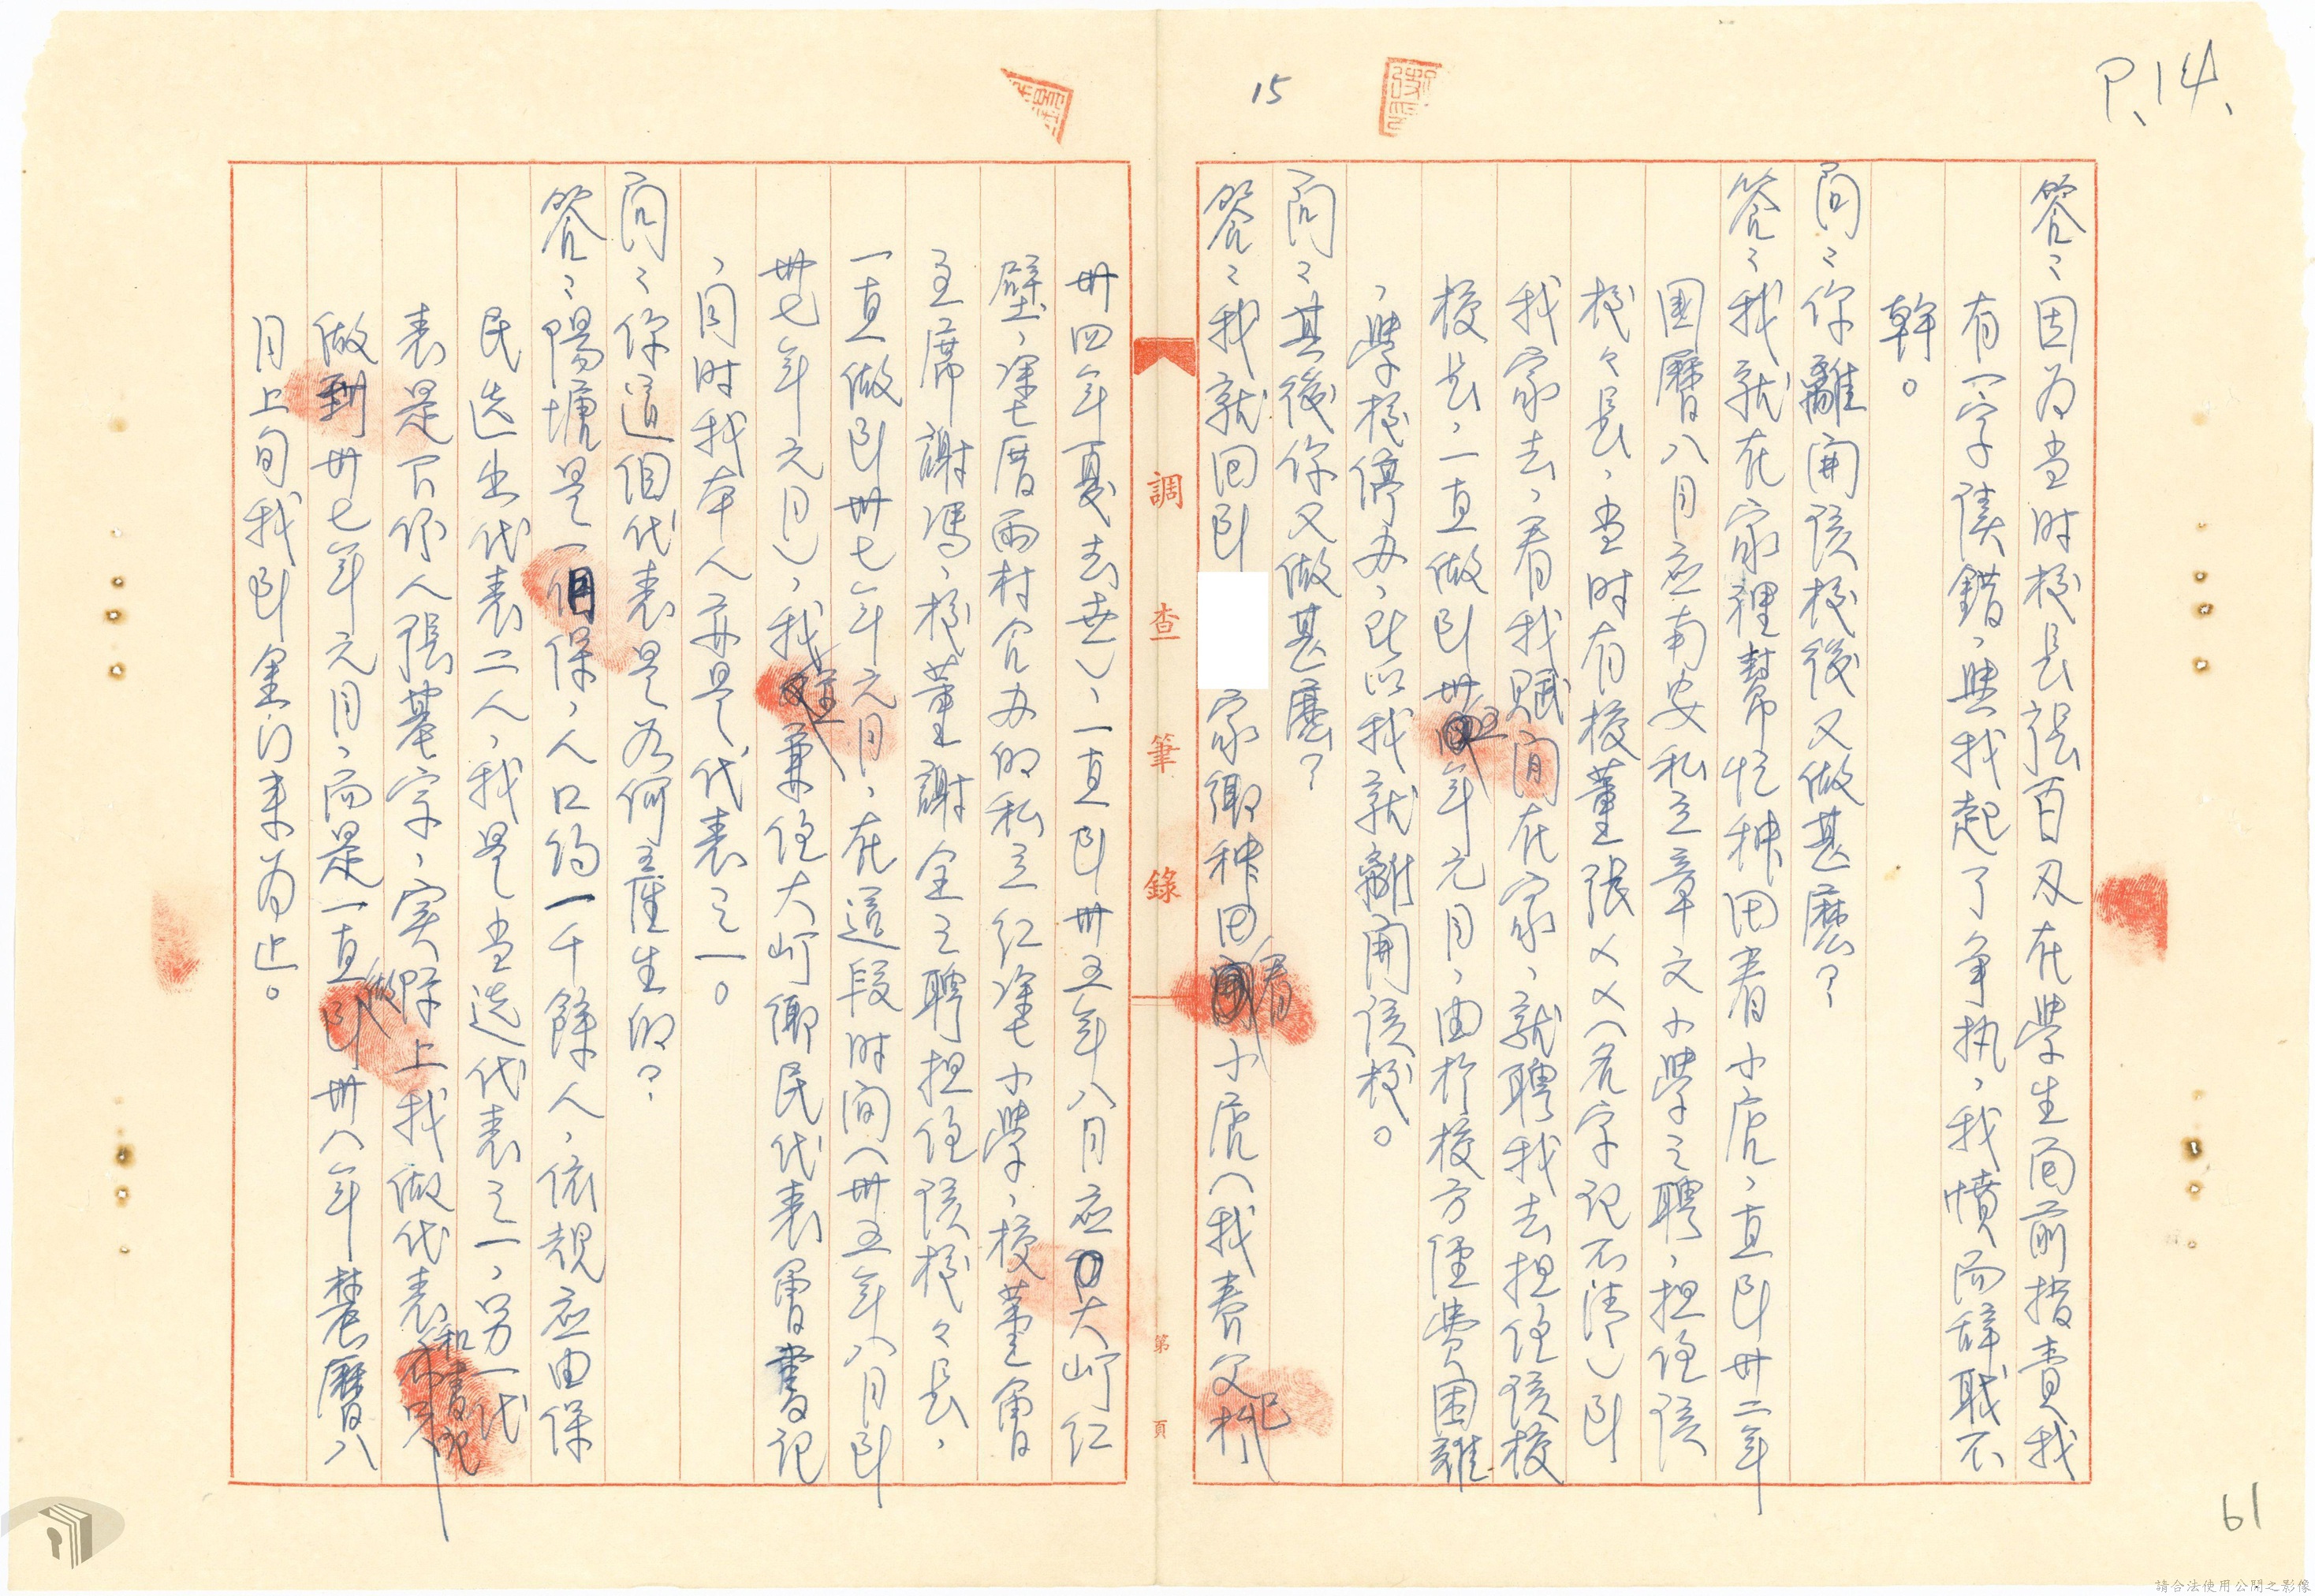 P.14.
15
答：因为当时校長張百双在學生面前指責我
有一字讀錯，與我起了争执，我憤而辞職不
幹。
问：你離開該校後又做甚麽？
答：我就在家裡幫忙种田看小店，直到卅二年
國曆八月应南安私立章文小學之聘，担任該
校々長，当时有校董張㐅㐅（名字记不清）到
我家去，看我賦闲在家，就聘我去担任該校
校長，一直做到卅五年元月，由於校方经費困難
，學校停办，所以我就離開該校。
问：其後你又做甚麽？
答：我就回到　家鄉种田看小店（我養父已於
調查筆錄
第　頁
卅四年夏去世），一直到卅五年八月应大㟁红
壁、深七厝兩村合办的私立红深七小學，校董會
主席謝馮，校董謝金之聘担任該校々長，
一直做到卅七年元月，在這段时间（卅五年八月到
卅七年元月），我兼任大㟁鄉民代表會書记
，同时我本人亦是代表之一。
问：你這個代表是为何產生的？
答：陽塘是一個保，人口约一千餘人，依規应由保
民选出代表二人，我是当选代表之一，另一代
表是不作人張墓字，实際上我做代表和書记
做到卅七年元月，而是一直做到卅八年農曆八
月上旬我到金门来为止。
61
請合法使用公開之影像